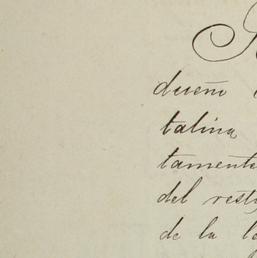 dueño
talina
tamente
del rest
de la